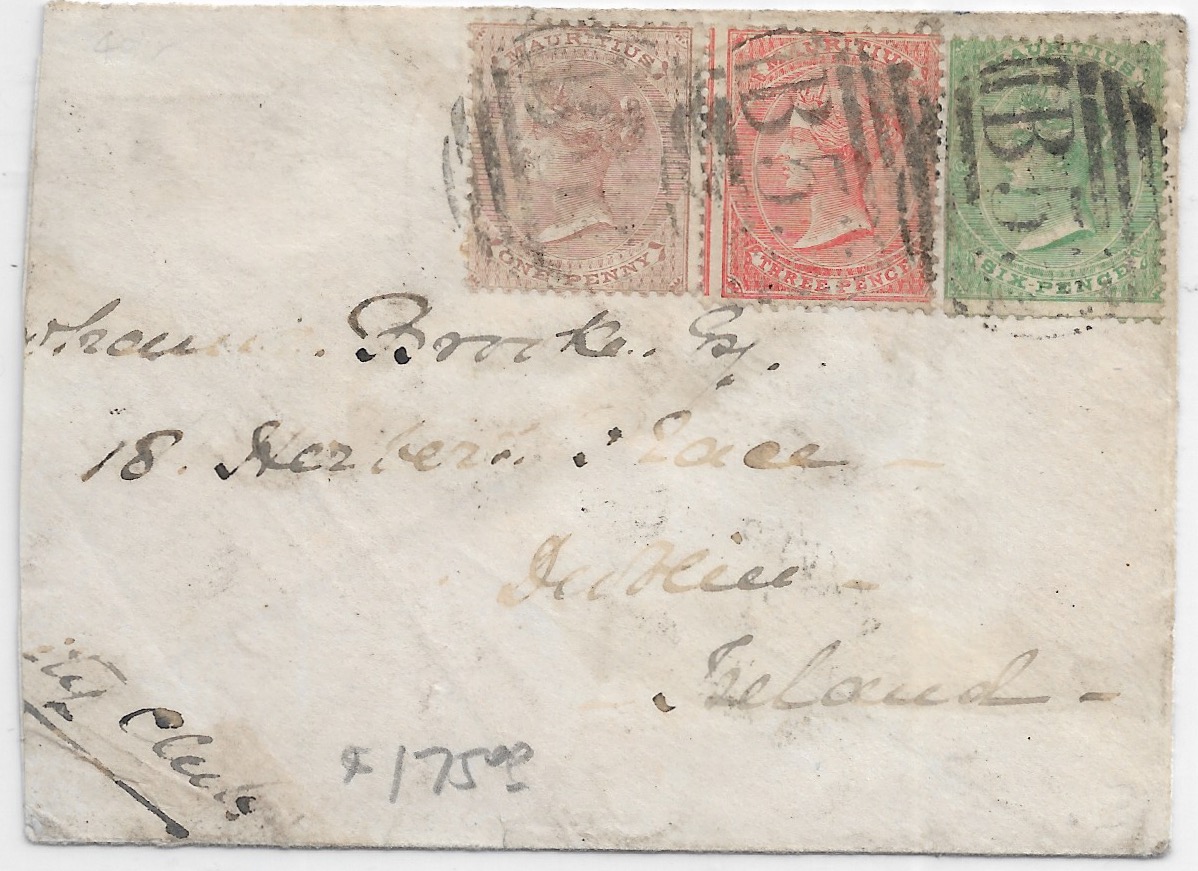 MAURITIUS
ONE PENNY
MAURITIUS
THREE PENCE
MAURITIUS
SIX PENCE
B53
B53
Brooke. Esq.
18. Herbert Place
Dublin
Ireland
Club
175.00